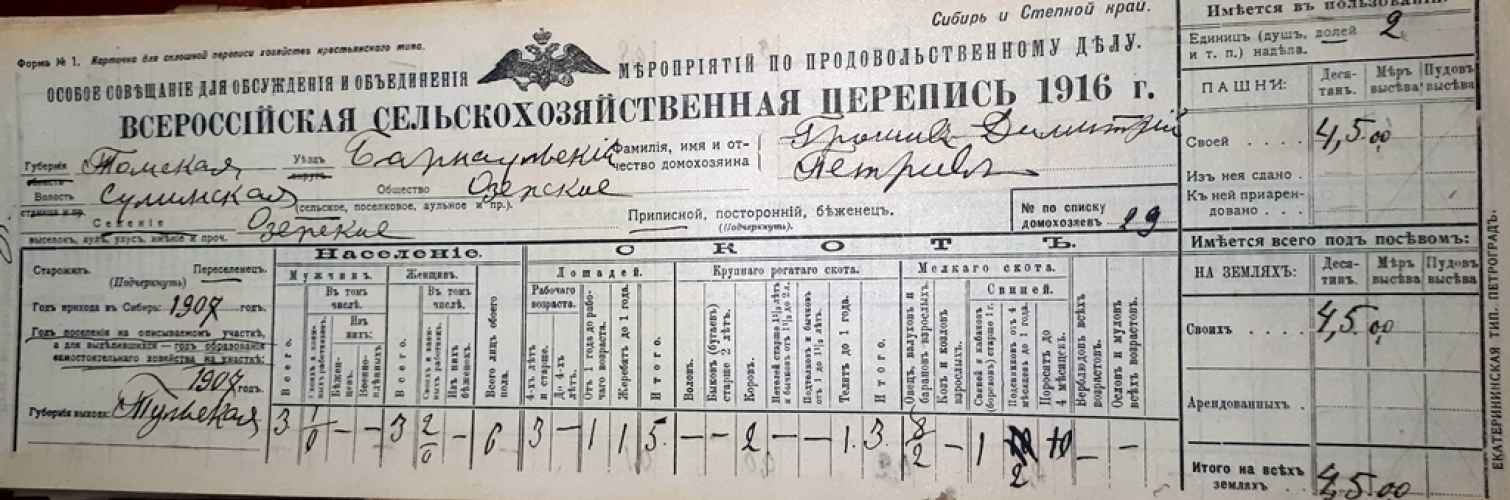 Сибирь и Степной край.
Форма № 1. Карточка для сплошной переписи хозяйствъ крестьянскаго типа.
ОСОБОЕ СОВѢЩАНІЕ ДЛЯ ОБСУЖДЕНІЯ И ОБЪЕДИНЕНІЯ МѢРОПРІЯТІЙ ПО ПРОДОВОЛЬСТВЕННОМУ ДѢЛУ.
ВСЕРОССІЙСКАЯ СЕЛЬСКОХОЗЯЙСТВЕННАЯ ПЕРЕПИСЬ 1916 г.
Губернія Томская Уѣздъ Барнаульскій Фамилія, имя и от-
чество домохозяина Димитрій
Волость Общество Озерское
(сельское, поселковое, аульное и пр.).
Селеніе Озерское
выселокъ, аулъ, улусъ, имѣніе и проч.
Приписной, посторонній, бѣженецъ.
(Подчеркнуть).
№ по списку
домохозяевъ 29
Старожилъ. Переселенецъ.
(Подчеркнуть)
Годъ прихода въ Сибирь: 1907 годъ.
Годъ поселенія на описываемомъ участкѣ,
а для выдѣлившихся — годъ образованія
самостоятельнаго хозяйства на участкѣ:
1907 годъ.
Губернія выхода: Тульская
Населеніе.
Мужчинъ. Женщинъ.
Всего.
Въ томъ числѣ.
Своихъ и наем-
ныхъ работник.
Изъ нихъ:
Бѣжен-
цевъ.
Военно-
плѣнныхъ.
Всего.
Въ томъ числѣ.
Своихъ и наем-
ныхъ работник.
Изъ нихъ
бѣженокъ.
Всего лицъ обоего
пола.
СКОТЪ.
Лошадей.
Рабочаго
возраста.
4-хъ лѣтъ
и старше.
До 4-хъ
лѣтъ.
Отъ 1 года до рабо-
чаго возраста.
Жеребятъ до 1 года.
Итого.
Крупнаго рогатаго скота.
Воловъ.
Быковъ (бугаевъ)
старше 2 лѣтъ.
Коровъ.
Нетелей старше 1½ лѣтъ
и бычковъ отъ 1½ до 2 л.
Подтелковъ и бычковъ
отъ 1 до 1½ лѣтъ.
Телятъ до 1 года.
Итого.
Мелкаго скота.
Овецъ, валуховъ и
барановъ взрослыхъ.
Козъ и козловъ
взрослыхъ.
Свиней.
Свиней и кабановъ
(борововъ) старше 1 г.
Подсвинковъ отъ 4
мѣсяцевъ до 1 года.
Поросятъ до
4 мѣсяцевъ.
Верблюдовъ всѣхъ
возрастовъ.
Ословъ и муловъ
всѣхъ возрастовъ.
3 1/0 — — 3 2/0 — 6 3 — 1 1 5. — — 2 — — 1. 3. 8/2 — 1 2 — —
Имѣется въ пользованіи:
Единицъ (душъ, долей 2
и т. п.) надѣла.
ПАШНИ: Деся-
тинъ. Мѣръ
высѣва Пудовъ
высѣва
Своей 4,5.00
Изъ нея сдано .
Къ ней приарен-
довано . . . .
Имѣется всего подъ посѣвомъ:
НА ЗЕМЛЯХЪ: Деся-
тинъ. Мѣръ
высѣва Пудовъ
высѣва
Своихъ 4,5.00
Арендованныхъ .
Итого на всѣхъ
земляхъ 4,5.00
ЕКАТЕРИНИНСКАЯ ТИП. ПЕТРОГРАДЪ.